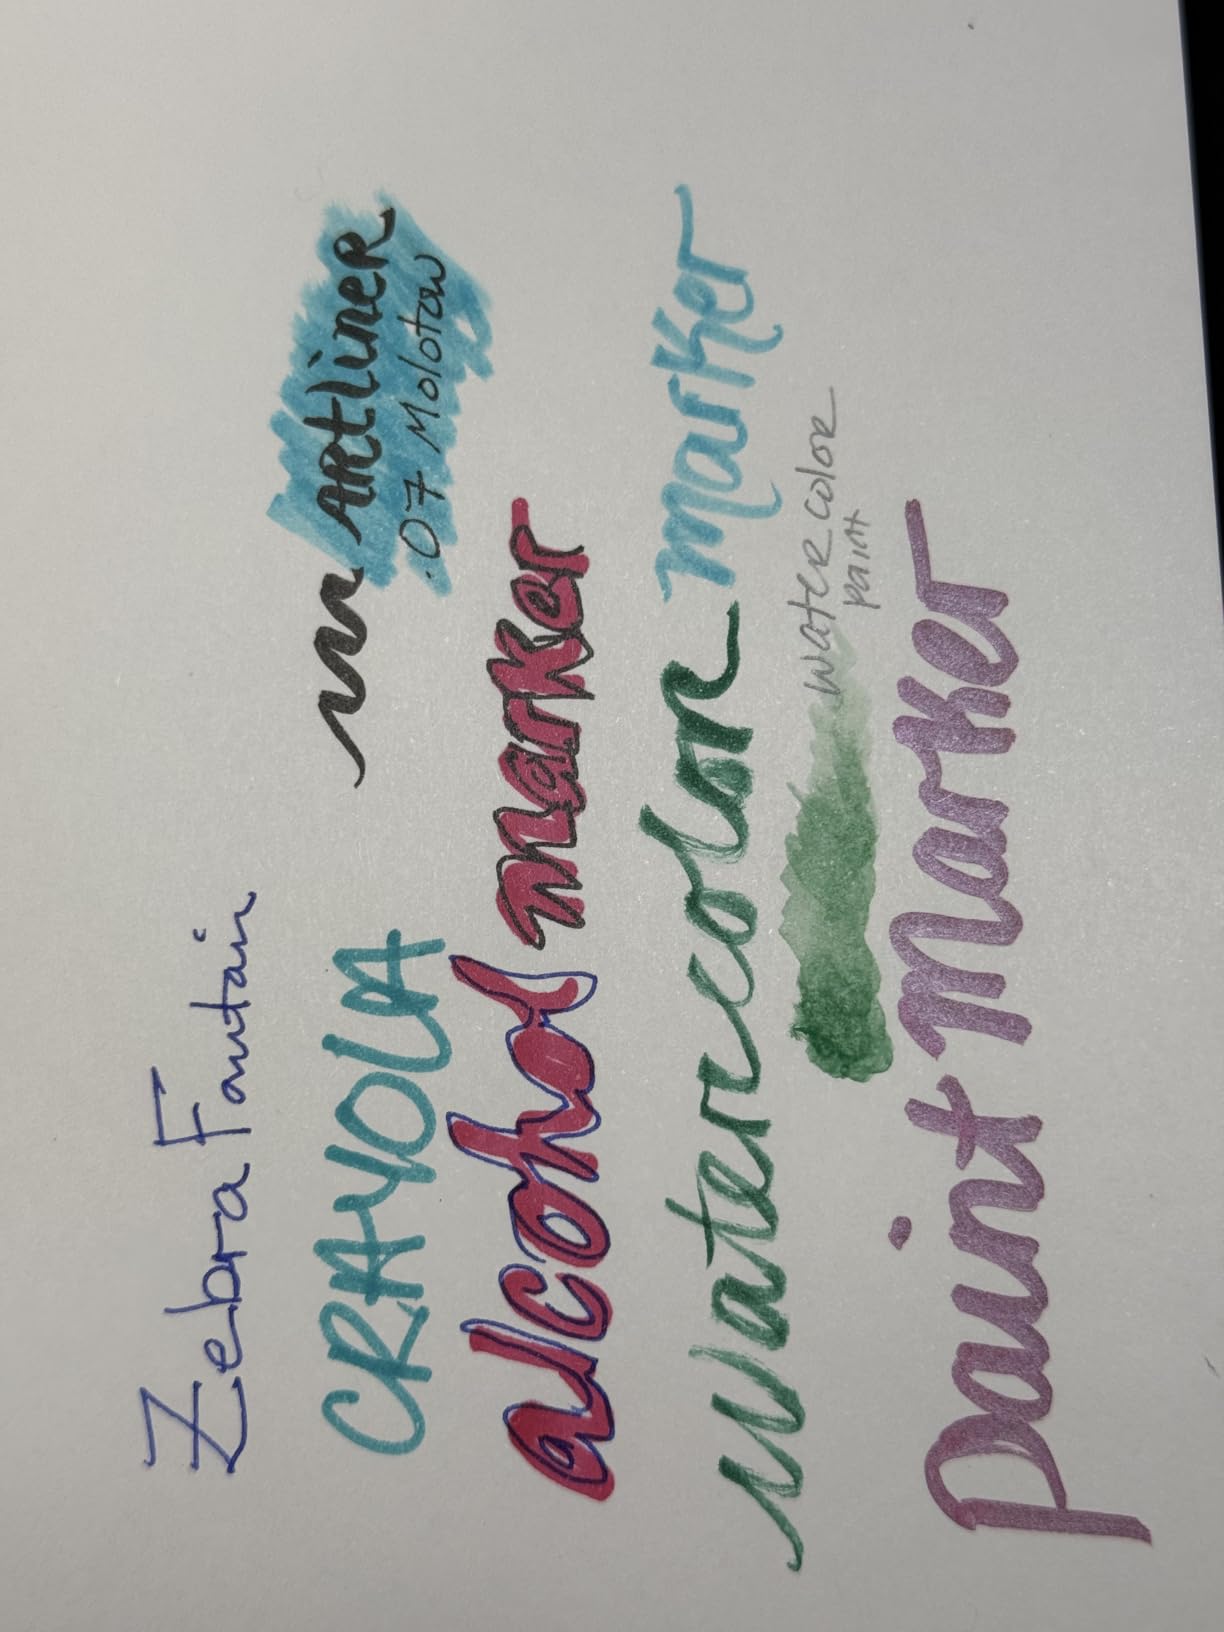 Zebra Fountain
ARtlineR
.07 Molotow
CRAYOLA
alcohol marker
watercolor marker
water coloR
paint
paint Marker